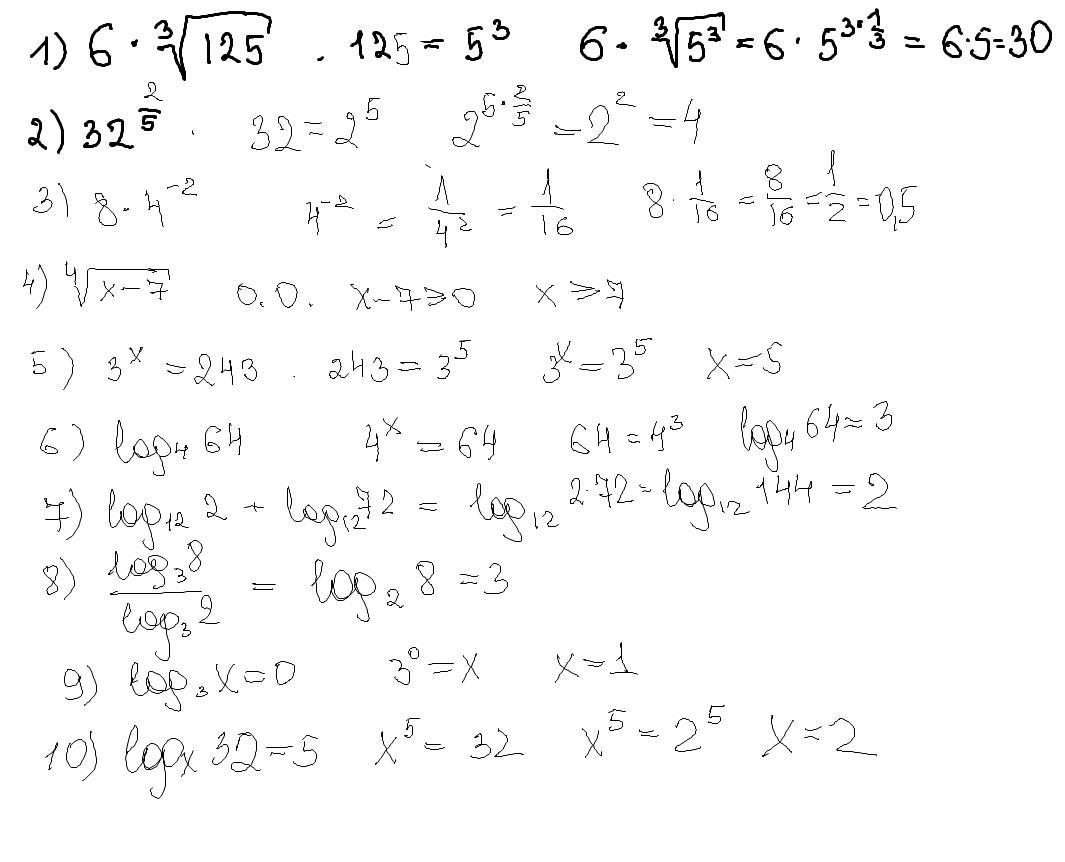 1) 6 · ∛125 . 125 = 5³ 6 · ∛5³ = 6 · 5^(3·1/3) = 6·5=30
2) 32^(2/5) . 32 = 2⁵ 2^(5·2/5) = 2² = 4
3) 8 · 4⁻² 4⁻² = 1/4² = 1/16 8 · 1/16 = 8/16 = 1/2 = 0,5
4) ∜(x−7) O.O. x−7⩾0 x ⩾ 7
5) 3ˣ = 243 . 243 = 3⁵ 3ˣ = 3⁵ x=5
6) log₄ 64 4ˣ = 64 64 = 4³ log₄ 64 = 3
7) log₁₂ 2 + log₁₂ 72 = log₁₂ 2·72 = log₁₂ 144 = 2
8) log₃ 8 / log₃ 2 = log₂ 8 = 3
9) log₃ x = 0 3⁰ = x x = 1
10) logₓ 32 = 5 x⁵ = 32 x⁵ = 2⁵ x = 2